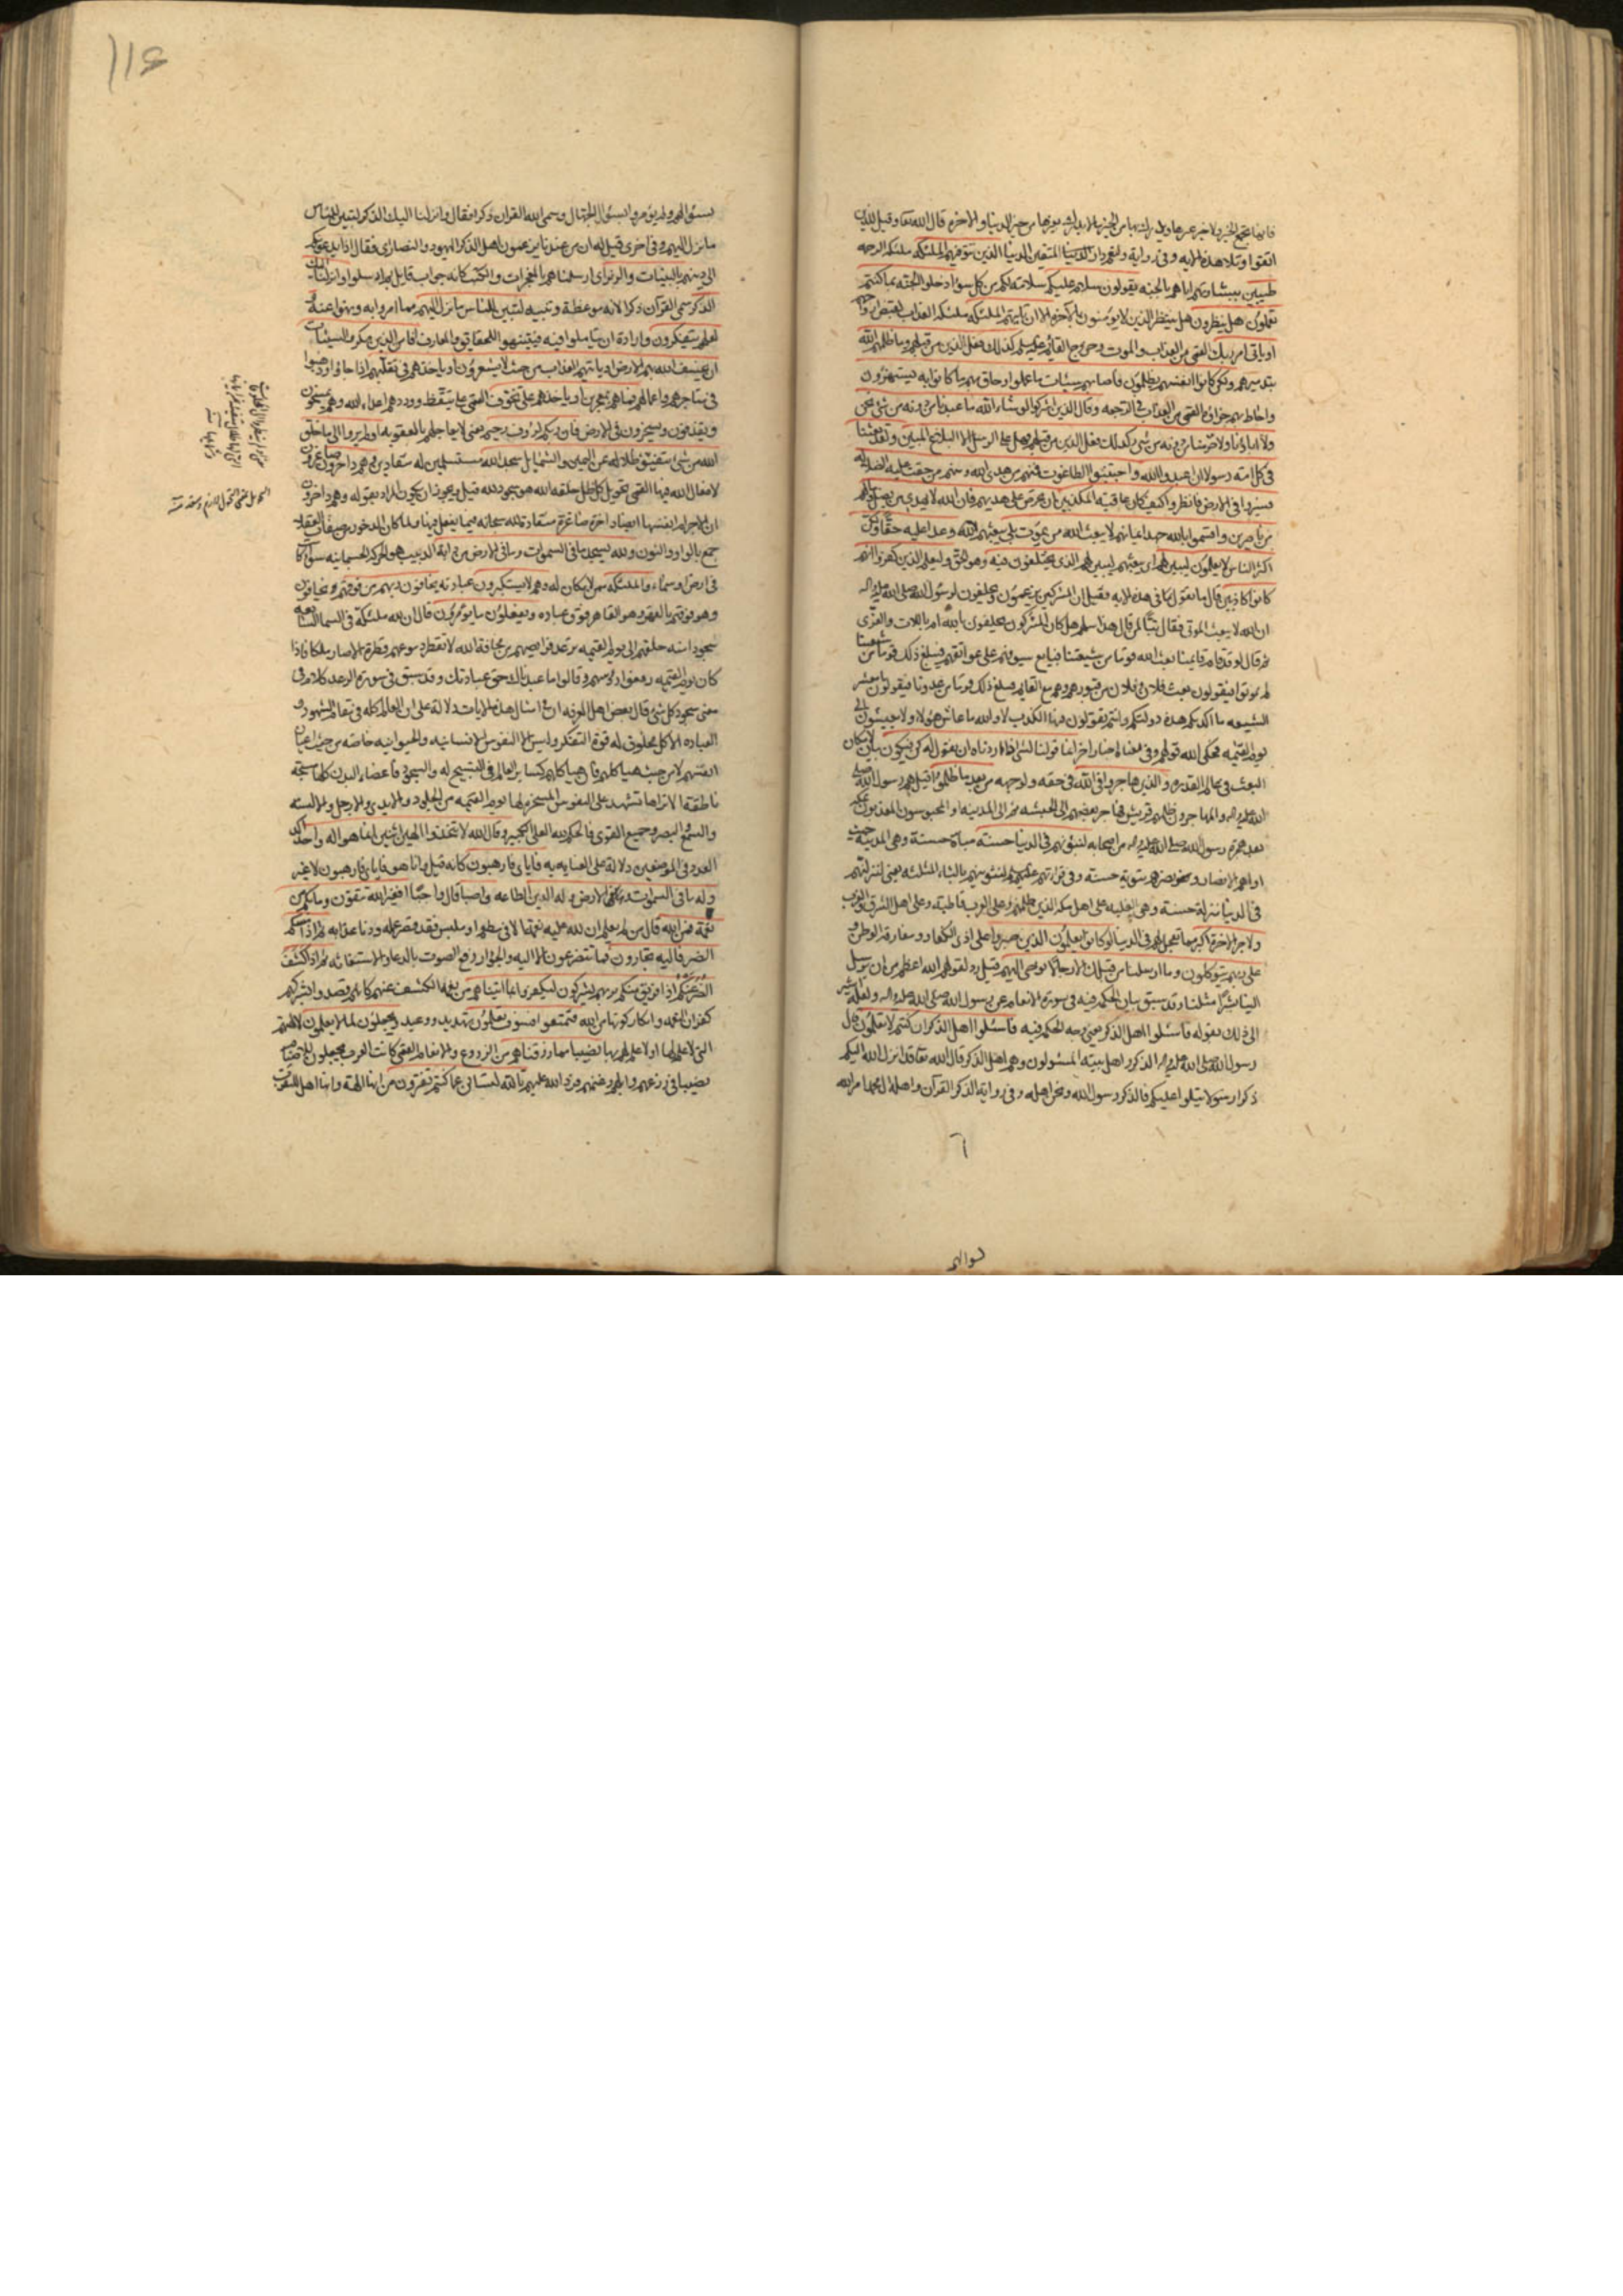 اتقوا وتلا هذه الآية وفى رواية ولنعم دار المتقين الدنيا الذين تتوفيهم الملئكة ملئكة الرحمة
طيبين ببشارتهم اياهم بالجنة يقولون سلام عليكم سلامة لكم من كل سوء ادخلوا الجنة بما كنتم
تعملون هل ينظرون هل ينتظر الذين لا يؤمنون بالآخرة الا ان تاتيهم الملئكة ملئكة العذاب لقبض ارواحهم
او ياتى امر ربك القمى من العذاب والموت وخروج القائم كذلك فعل الذين من قبلهم وما ظلمهم الله
بتدميرهم ولكن كانوا انفسهم يظلمون فاصابهم سيئات ما عملوا وحاق بهم ما كانوا به يستهزؤن
واحاط بهم جزاؤه القمى من العذاب فى الرجعة وقال الذين اشركوا لو شاء الله ما عبدنا من دونه من شئ نحن
ولا اباؤنا ولا حرمنا من دونه من شئ كذلك فعل الذين من قبلهم فهل على الرسل الا البلاغ المبين ولقد بعثنا
فى كل امة رسولا ان اعبدوا الله واجتنبوا الطاغوت فمنهم من هدى الله ومنهم من حقت عليه الضلالة
فسيروا فى الارض فانظروا كيف كان عاقبة المكذبين ان تحرص على هديهم فان الله لا يهدى من يضل وما لهم
من ناصرين واقسموا بالله جهد ايمانهم لا يبعث الله من يموت بلى يبعثهم الله وعدا عليه حقا ولكن
اكثر الناس لا يعلمون ليبين لهم اى يبعثهم ليبين لهم الذى يختلفون فيه وهو الحق وليعلم الذين كفروا انهم
كانوا كاذبين قال ما يقول الناس فى هذه الآية فقيل ان المشركين يزعمون ويحلفون لرسول الله صلى الله عليه واله
ان الله لا يبعث الموتى فقال تبا لمن قال هذا سلهم هل كان المشركون يحلفون بالله ام باللات والعزى
ثم قال لو قد قام قائمنا بعث الله قوما من شيعتنا قبايع سيوفهم على عواتقهم فيبلغ ذلك قوما من شيعتنا
لم يموتوا فيقولون بعث فلان وفلان من قبورهم وهم مع القائم فيبلغ ذلك قوما من عدونا فيقولون يا معشر
الشيعة ما اكذبكم هذه دولتكم وانتم تقولون فيها الكذب لا والله ما عاش هؤلاء ولا يعيشون الى
يوم القيمة فحكى الله قولهم انما قولنا لشئ اذا اردناه ان نقول له كن فيكون بيان لامكان
البعث والذين هاجروا فى الله فى حقه ولوجهه من بعد ما ظلموا قيل هم رسول الله صلى
الله عليه واله والمهاجرون ظلمهم قريش فهاجر بعضهم الى الحبشة ثم الى المدينة او المحبوسون المعذبون بمكة
بعد هجرة رسول الله صلى الله عليه واله من اصحابه لنبوئنهم فى الدنيا حسنة مباءة حسنة وهى المدينة حيث
فى الدنيا منزلة حسنة وهى الغلبة على اهل مكة الذين ظلموهم وعلى العرب قاطبة وعلى اهل الشرق والغرب
ولاجر الاخرة اكبر مما تعجل لهم فى الدنيا لو كانوا يعلمون الذين صبروا على اذى الكفار ومفارقة الوطن و
على ربهم يتوكلون وما ارسلنا من قبلك الا رجالا نوحى اليهم قيل رد لقولهم الله اعظم من ان يرسل
الينا بشرا مثلنا وقد سبق بيان الحكمة فيه فى سورة الانعام عن رسول الله صلى الله عليه واله ولعله اشير
الى ذلك بقوله فاسئلوا اهل الذكر يعنى وجه الحكمة فيه فاسئلوا اهل الذكر ان كنتم لا تعلمون قال
رسول الله صلى الله عليه واله الذكر واهل بيته المسئولون وهم اهل الذكر قال الله تعالى قد انزل الله اليكم
ذكرا رسولا يتلوا عليكم فالذكر رسول الله ونحن اهله وفى رواية الذكر القرآن واهله آل محمد امر الله
بسؤالهم ولم يؤمروا بسؤال الجهال وسمى الله القران ذكرا فقال وانزلنا اليك الذكر لتبين للناس
ما نزل اليهم وفى اخرى قيل له ان من عندنا يزعمون اهل الذكر اليهود والنصارى فقال اذا يدعونكم
الى دينهم بالبينات والزبر اى ارسلناهم بالمعجزات والكتب كانه جواب قايل بم ارسلوا وانزلنا اليك
الذكر سمى القرآن ذكرا لانه موعظة وتنبيه لتبين للناس ما نزل اليهم مما امروا به ونهوا عنه
لعلهم يتفكرون وارادة ان يتاملوا فيه فيتنبهوا للحقايق والمعارف افامن الذين مكروا السيئات
ان يخسف الله بهم الارض او ياتيهم العذاب من حيث لا يشعرون او ياخذهم فى تقلبهم اذا جاؤا وذهبوا
فى متاجرهم واعمالهم فما هم بمعجزين او ياخذهم على تخوف القمى على تيقظ
ويقذفون ويسيحون فى الارض فان ربكم لرؤف رحيم يعنى لا يعاجلهم بالعقوبة اولم يروا الى ما خلق
الله من شئ يتفيؤ ظلاله عن اليمين والشمايل سجدا لله مستسلمين له منقادين وهم داخرون صاغرون
لافعال الله فيها القمى تحويل كل ظل خلقه الله هو سجود لله قيل ويجوز ان يكون المراد بقوله وهم داخرون
ان الاجرام انفسها ايضا داخرة صاغرة منقادة لله سبحانه فيما يفعل فيها ولما كان الدخور من صفات العقلاء
جمع بالواو والنون ولله يسجد ما فى السموات وما فى الارض من دابة الدبيب هو الحركة الجسمانية سواء كان
فى ارض او سماء والملئكة ممن لا مكان له وهم لا يستكبرون عن عبادته يخافون ربهم من فوقهم
وهو فوقهم بالقهر وهو القاهر فوق عباده ويفعلون ما يؤمرون قال ان لله ملئكة فى السماء السابعة
سجودا منذ خلقهم الى يوم القيمة ترعد فرائصهم من مخافة الله لا تقطر من دموعهم قطرة الا صار ملكا فاذا
كان يوم القيمة رفعوا رؤسهم وقالوا ما عبدناك حق عبادتك وقد سبق فى سورة الرعد كلام فى
معنى سجود كل شئ قال بعض اهل المعرفة ان امثال هذه الآيات دلالة على ان العالم كله فى مقام الشهود و
العبادة الا كل مخلوق له قوة التفكر وليس الا النفوس الانسانية والحيوانية خاصة من حيث اعيان
انفسهم لا من حيث هياكلهم فان هياكلهم كساير العالم فى التسبيح له والسجود فاعضاء البدن كلها مسبحة
ناطقة الا تراها تشهد على النفوس المسخرة لها يوم القيمة من الجلود والايدى والارجل والالسنة
والسمع والبصر وجميع القوى فالحكم لله العلى الكبير وقال الله لا تتخذوا الهين اثنين انما هو اله واحد اكد
العدد فى الموضعين دلالة على العناية به فاياى فارهبون كانه قيل وانا هو فاياى فارهبون لا غير
وله ما فى السموات والارض وله الدين الطاعة واصبا قال واجبا افغير الله تتقون وما بكم من
نعمة فمن الله قال من لم يعلم ان لله عليه نعمة الا فى مطعم او ملبس فقد قصر عمله ودنا عذابه ثم اذا مسكم
الضر فاليه تجارون فما تتضرعون الا اليه والجؤار رفع الصوت بالدعاء والاستغاثة ثم اذا كشف
الضر عنكم اذا فريق منكم بربهم يشركون ليكفروا بما اتيناهم من نعمة الكشف عنهم كانهم قصدوا بشركهم
كفران النعمة وانكار كونها من الله فتمتعوا فسوف تعلمون تهديد ووعيد ويجعلون لما لا يعلمون لآلهتهم
التى لا علم لها او لا علم لهم بها نصيبا مما رزقناهم من الزروع والانعام القمى كانت العرب يجعلون للاصنام
نصيبا فى زرعهم وابلهم وغنمهم فرد الله عليهم تالله لتسئلن عما كنتم تفترون من انها الهة وانها اهل للتقرب